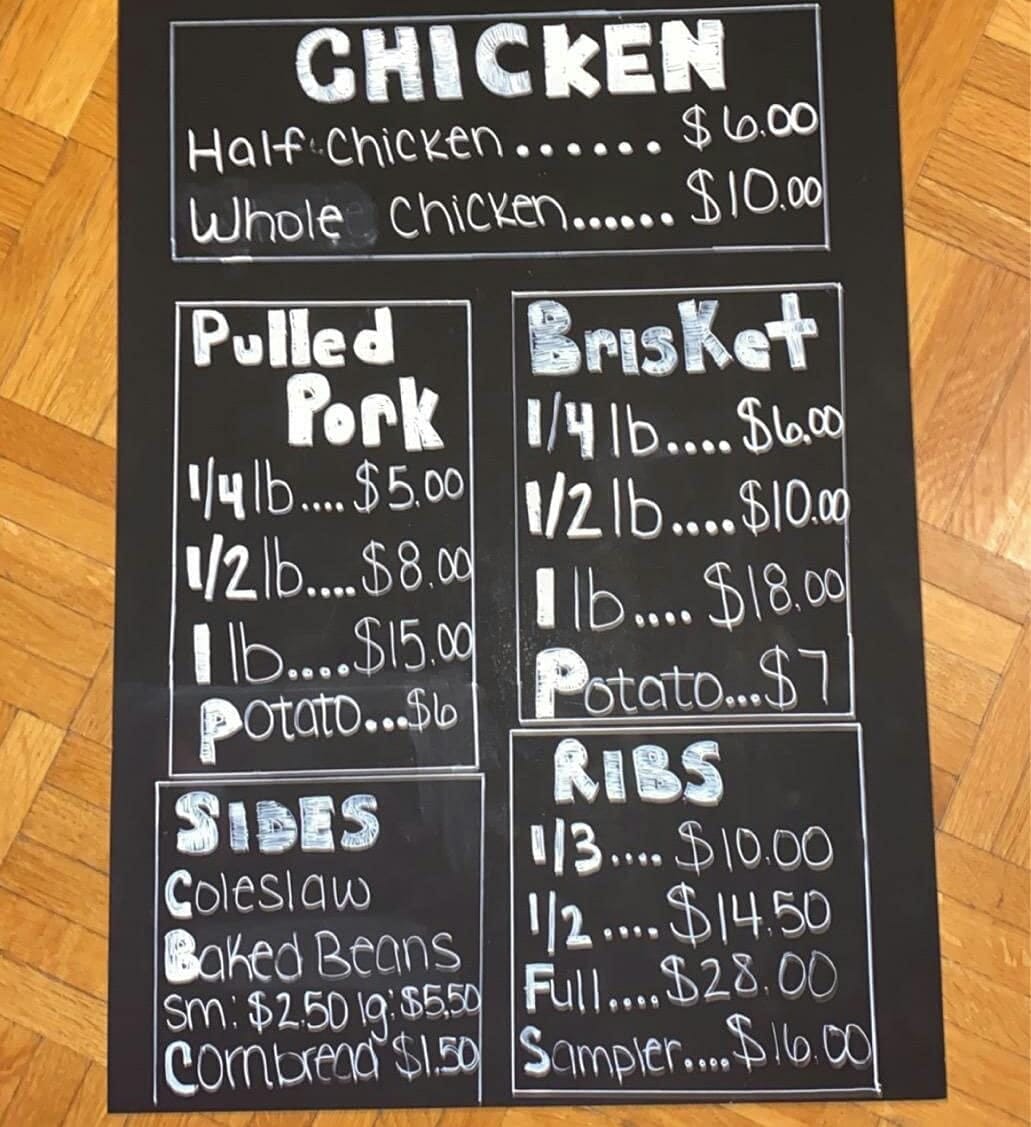 CHICKEN
Half Chicken...... $6.00
Whole Chicken...... $10.00
Pulled
Pork
1/4 lb.... $5.00
1/2 lb.... $8.00
1 lb.... $15.00
Potato... $6
Brisket
1/4 lb.... $6.00
1/2 lb.... $10.00
1 lb.... $18.00
Potato... $7
SIDES
Coleslaw
Baked Beans
sm: $2.50 lg: $5.50
Cornbread $1.50
RIBS
1/3.... $10.00
1/2.... $14.50
Full.... $28.00
Sampler.... $16.00